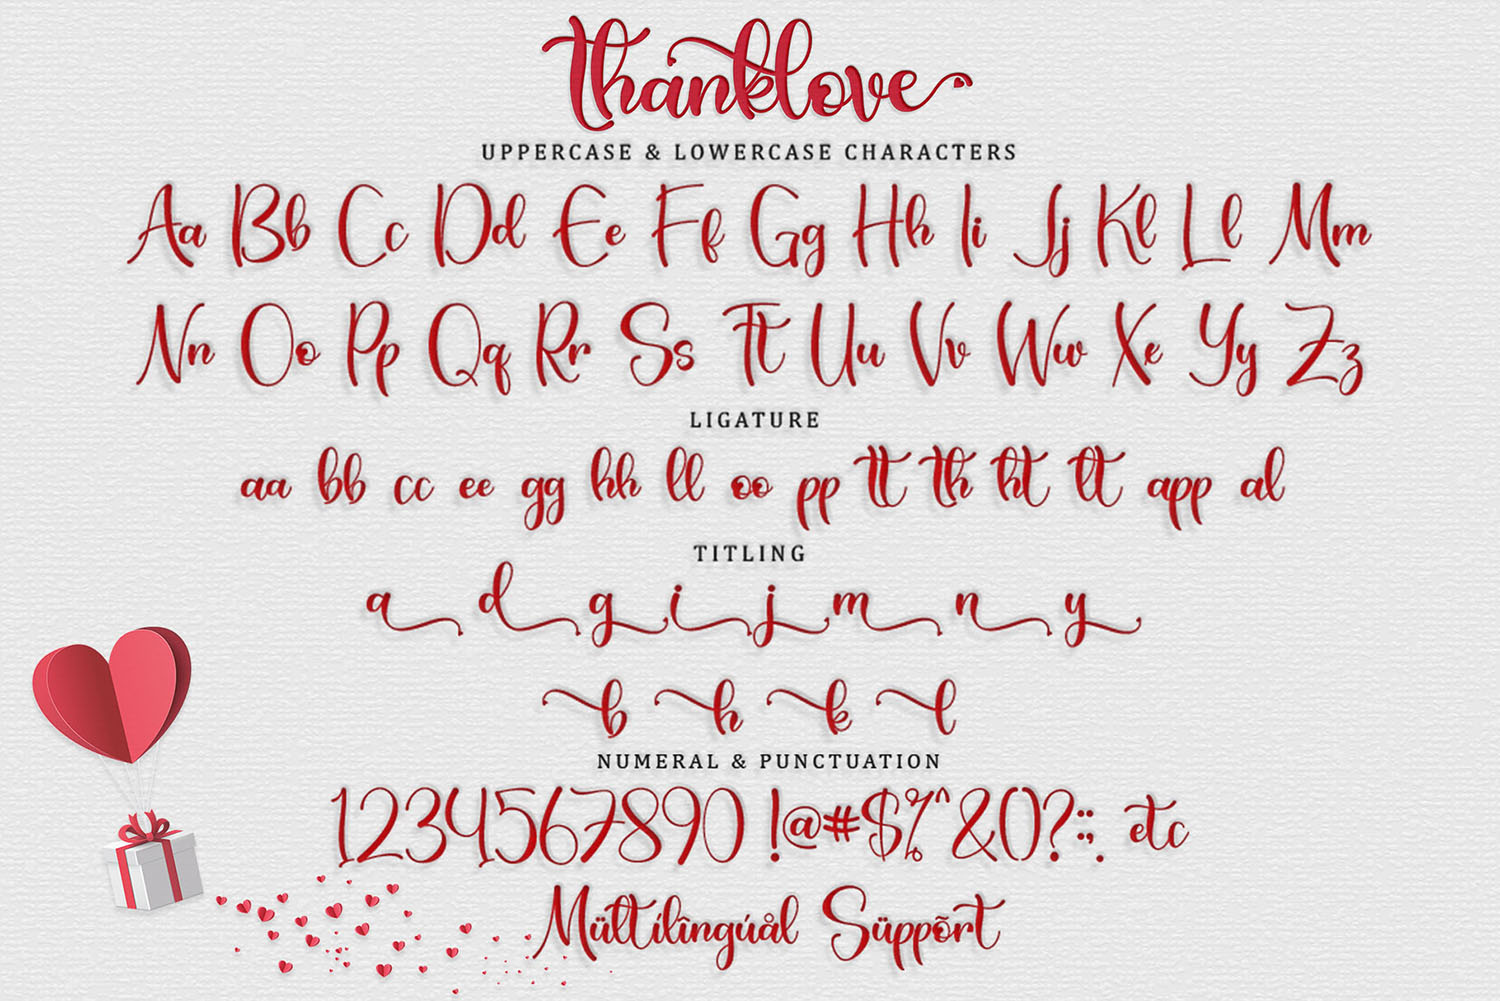 thanklove
UPPERCASE & LOWERCASE CHARACTERS
Aa Bb Cc Dd Ee Ff Gg Hh Ii Jj Kl Ll Mm
Nn Oo Pp Qq Rr Ss Tt Uu Vv Ww Xe Yy Zz
LIGATURE
aa bb cc ee gg hh ll oo pp tt th ht lt app al
TITLING
a d g i j m n y
b h k l
NUMERAL & PUNCTUATION
1234567890 !@#$%^&()?:;,. etc
Mültílîngúål Süppõrt